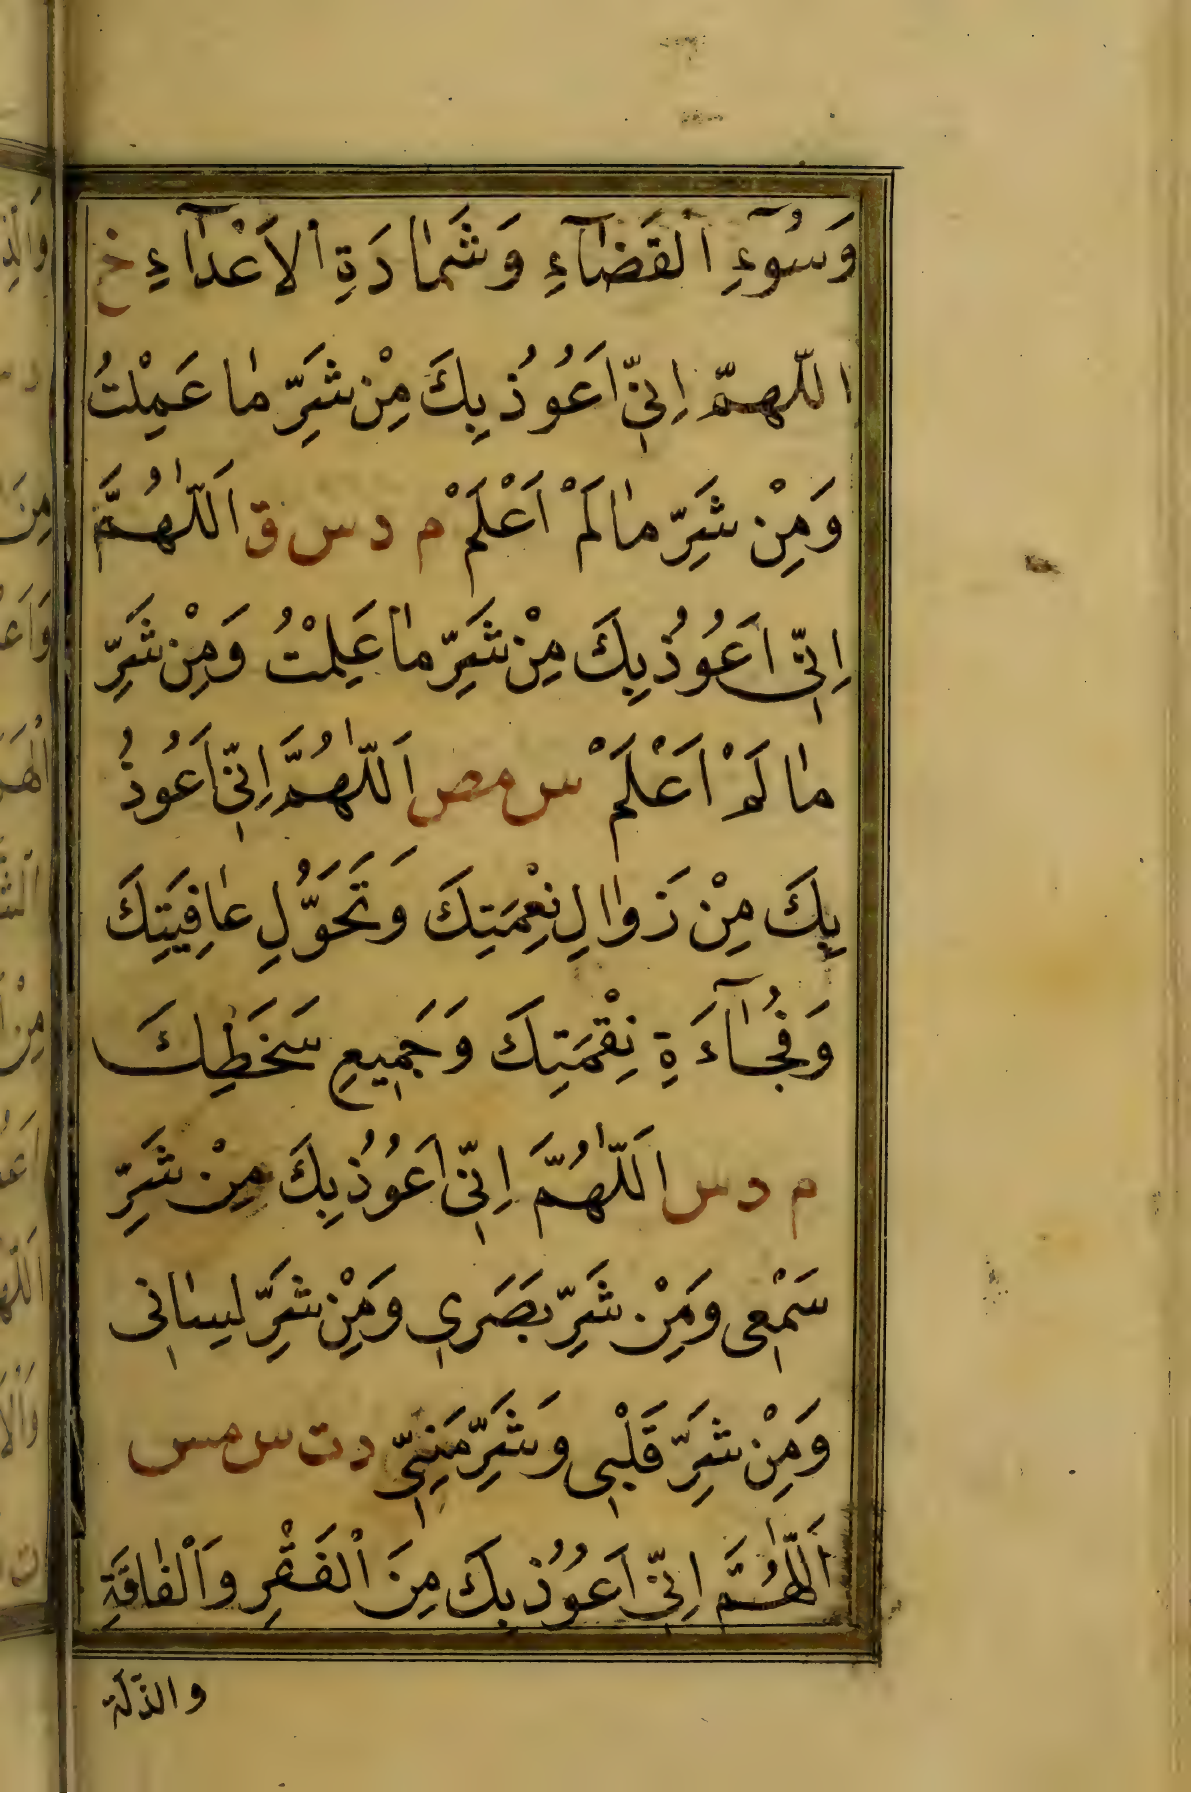 وَسُوٓءِ الْقَضَآءِ وَشَمَادَةِ الْاَعْدَآءِ خ
اللّهمّ اِنّي اَعُوُذُ بِكَ مِنْ شَرِّ مٰا عَمِلْتُ
وَمِنْ شَرِّ مٰا لَمْ اَعْلَمْ م د س ق اَللّٰهُمَّ
اِنّي اَعُوُذُ بِكَ مِنْ شَرِّ مٰا عَلِمْتُ وَمِنْ شَرِّ
مٰا لَمْ اَعْلَمْ س مص اَللّٰهُمَّ اِنّي اَعُوذُ
بِكَ مِنْ زَوٰالِ نِعْمَتِكَ وَتَحَوُّلِ عٰافِيَتِكَ
وَفُجٰآءَةِ نِقْمَتِكَ وَجَمِيعِ سَخَطِكَ
م د س اَللّٰهُمَّ اِنّي اَعُوُذُ بِكَ مِنْ شَرِّ
سَمْعي وَمِنْ شَرِّ بَصَرِي وَمِنْ شَرِّ لِسٰاني
وَمِنْ شَرِّ قَلْبي وَشَرِّ مَنِيّي د ت س مس
اَللّٰهُمَّ اِنّي اَعُوُذُ بِكَ مِنَ الْفَقْرِ وَالْفٰاقَةِ
والذّلة